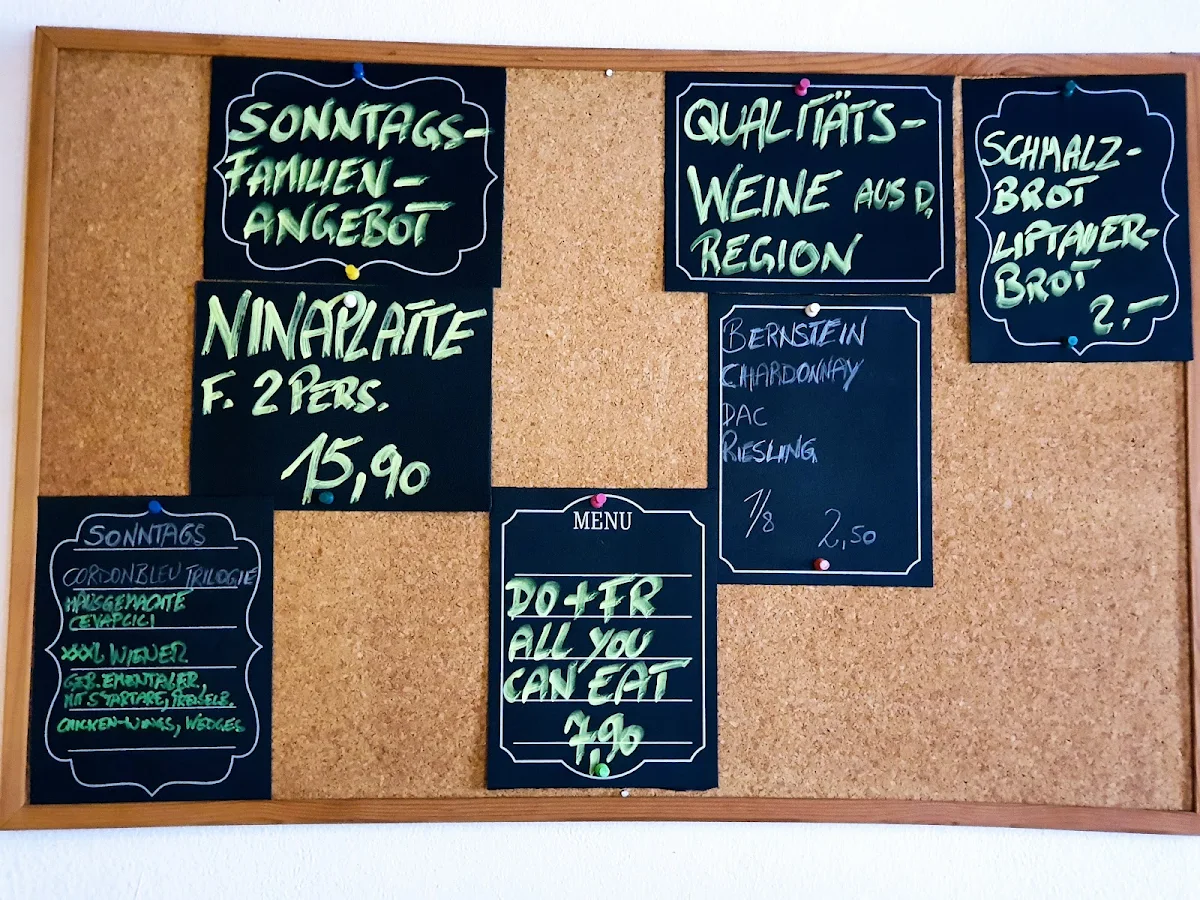 SONNTAGS-
FAMILIEN-
ANGEBOT
NINAPLATTE
F. 2 PERS.
15,90
SONNTAGS
CORDONBLEU TRILOGIE
HAUSGEMACHTE
CEVAPCICI
XXXL WIENER
GEB. EMENTALER
MIT S.TARTARE, PREISELB.
CHICKEN-WINGS, WEDGES
MENU
DO + FR
ALL YOU
CAN EAT
7,90
QUALITÄTS-
WEINE AUS D.
REGION
BERNSTEIN
CHARDONNAY
DAC
RIESLING
1/8 2,50
SCHMALZ-
BROT
LIPTAUER-
BROT
2.-